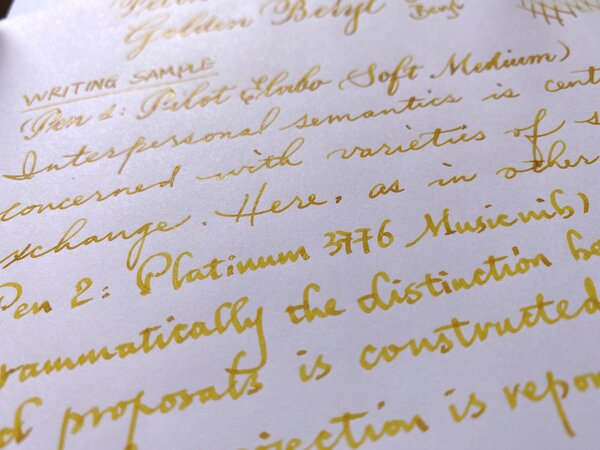 Golden Beryl
WRITING SAMPLE
(Pen 1: Pilot Elabo (Soft Medium)
Interpersonal semantics is cent
concerned with varieties of s
xchange. Here, as in other
Pen 2: Platinum 3776 Music nib)
rammatically the distinction be
d proposals is constructed
is repor